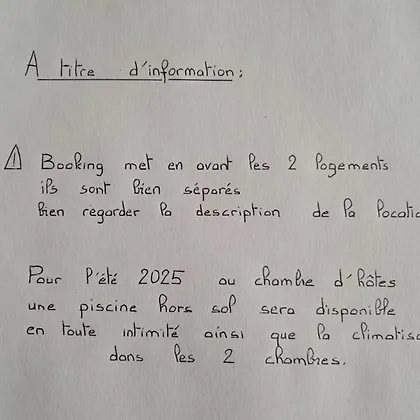 A titre d'information :
⚠ Booking met en avant les 2 logements
ils sont bien séparés
bien regarder la description de la locatio
Pour l'été 2025 ou chambre d'hôtes
une piscine hors sol sera disponible
en toute intimité ainsi que la climatisa
dans les 2 chambres.